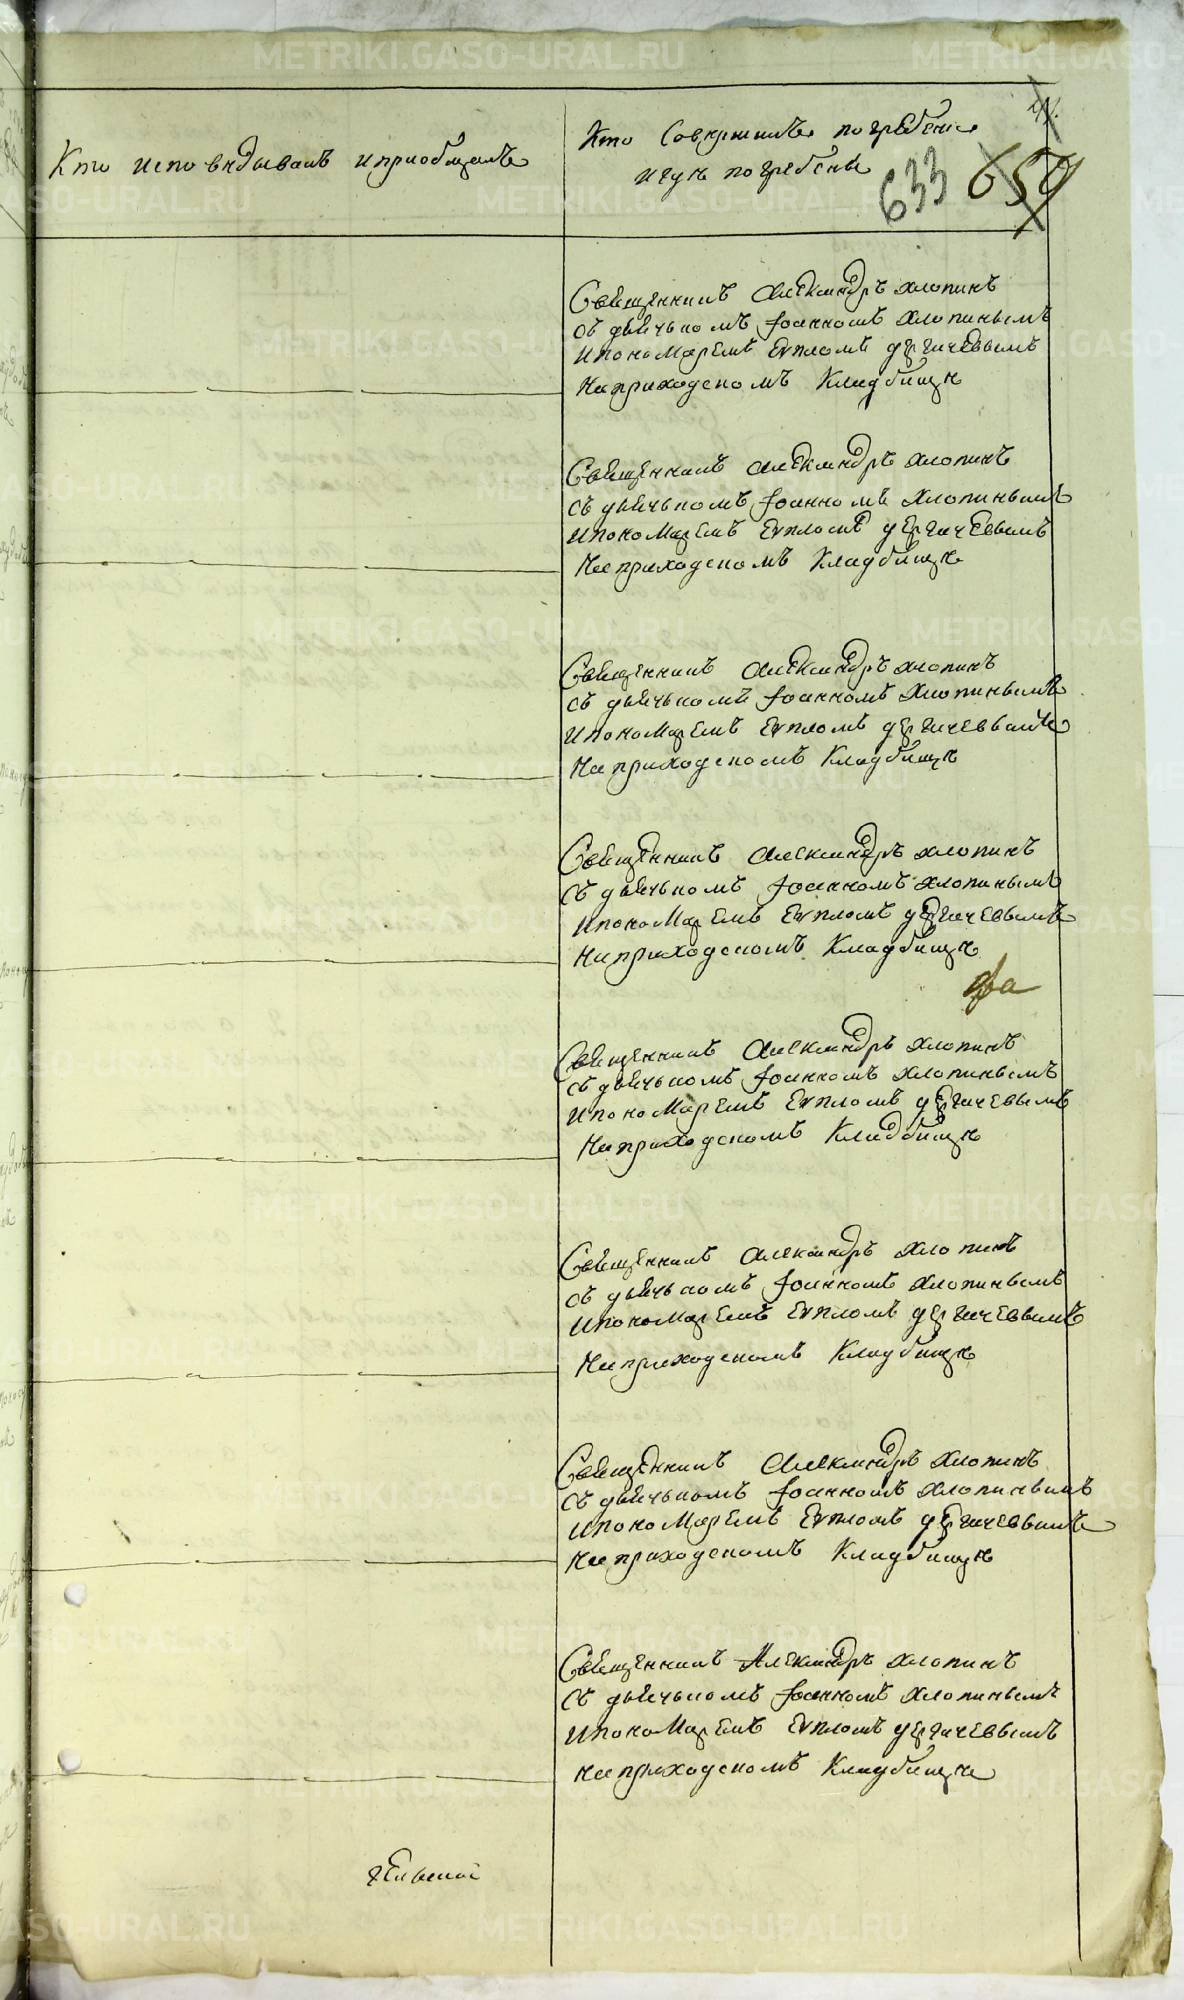 Кто исповѣдывалъ и приобщалъ
Кто Совершилъ погребение
и гдѣ погребены
633 659
Священникъ Александръ Хлопинъ
съ дьячькомъ Іоанномъ Хлопинымъ
и пономаремъ Еѵпломъ Дергачевымъ
На приходскомъ Кладбищѣ
Священникъ Александръ Хлопинъ
съ дьячькомъ Іоанномъ Хлопинымъ
и пономаремъ Еѵпломъ Дергачевымъ
На приходскомъ Кладбищѣ
Священникъ Александръ Хлопинъ
съ дьячькомъ Іоанномъ Хлопинымъ
и пономаремъ Еѵпломъ Дергачевымъ
На приходскомъ Кладбищѣ
Священникъ Александръ Хлопинъ
съ дьячькомъ Іоанномъ Хлопинымъ
и пономаремъ Еѵпломъ Дергачевымъ
На приходскомъ Кладбищѣ
Священникъ Александръ Хлопинъ
съ дьячькомъ Іоанномъ Хлопинымъ
и пономаремъ Еѵпломъ Дергачевымъ
На приходскомъ Кладбищѣ
Священникъ Александръ Хлопинъ
съ дьячькомъ Іоанномъ Хлопинымъ
и пономаремъ Еѵпломъ Дергачевымъ
На приходскомъ Кладбищѣ
Священникъ Александръ Хлопинъ
съ дьячькомъ Іоанномъ Хлопинымъ
и пономаремъ Еѵпломъ Дергачевымъ
На приходскомъ Кладбищѣ
Священникъ Александръ Хлопинъ
съ дьячькомъ Іоанномъ Хлопинымъ
и пономаремъ Еѵпломъ Дергачевымъ
На приходскомъ Кладбищѣ
METRIKI.GASO-URAL.RU